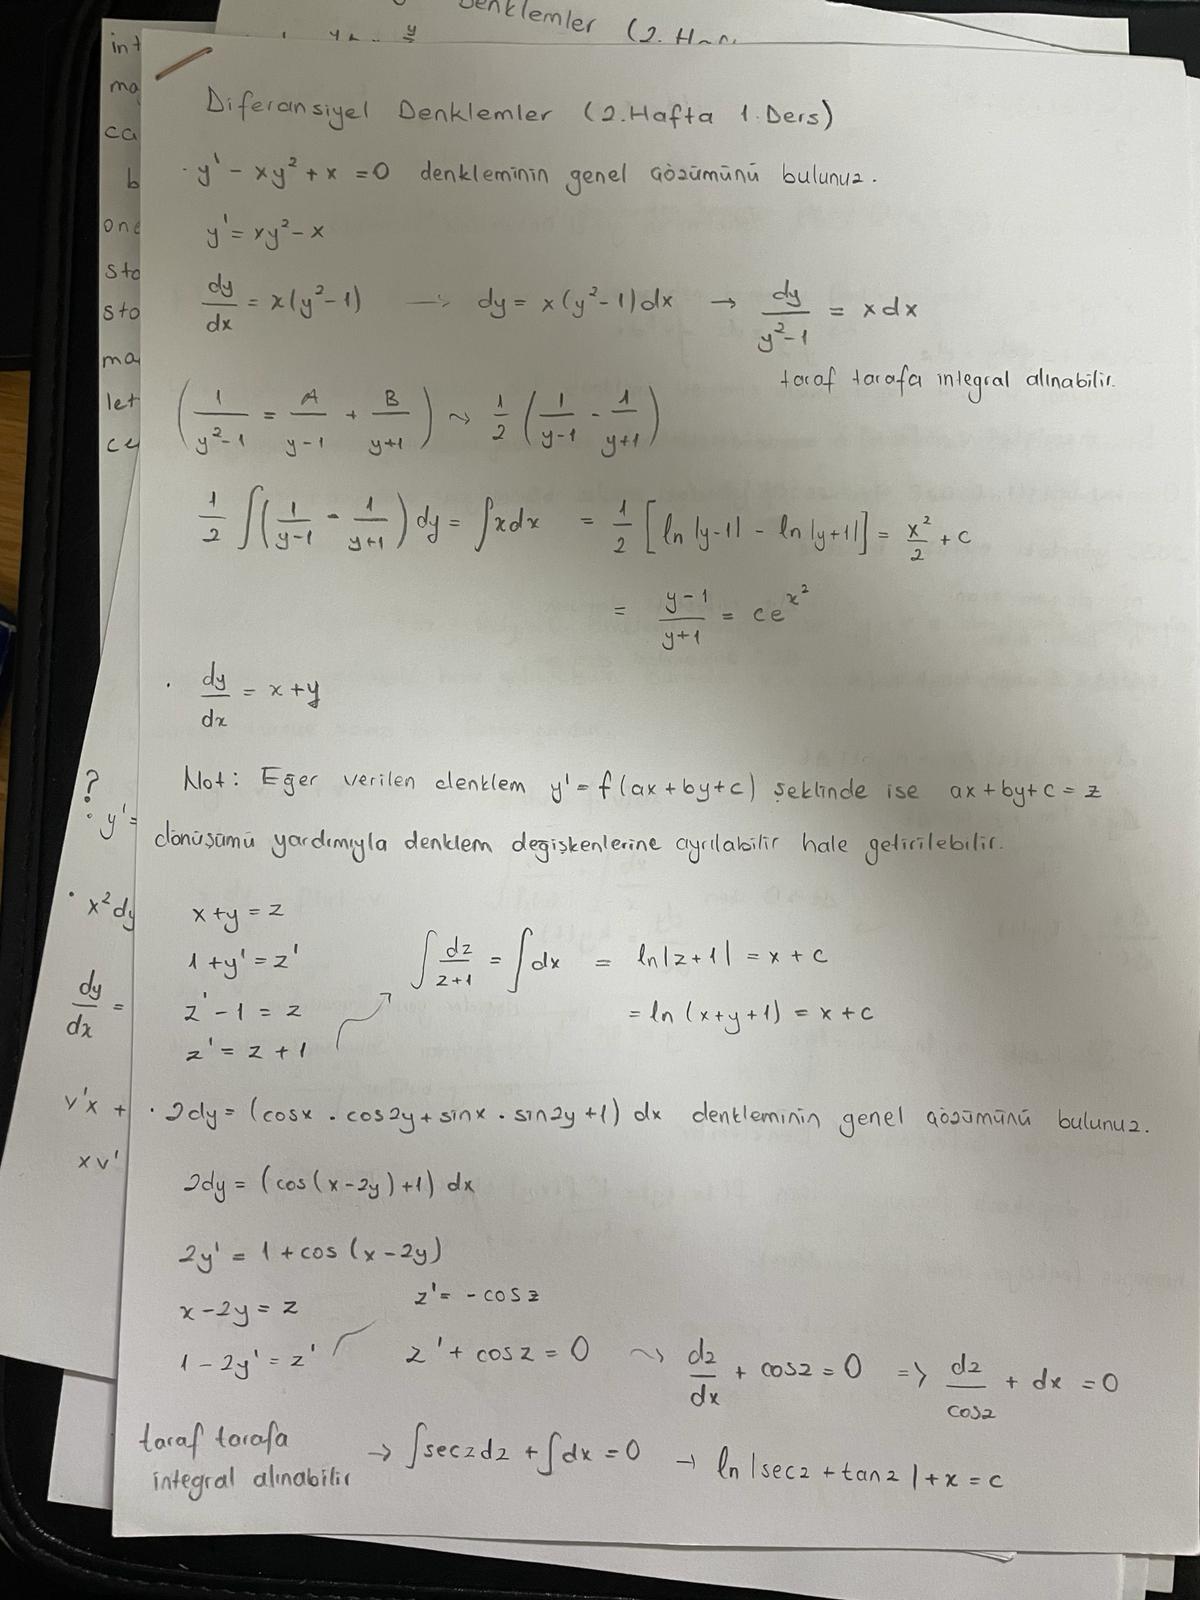 Denklemler (2. Haf
int
ma
ca
b
one
sto
sto
ma
let
ce
Diferansiyel Denklemler (2.Hafta 1.Ders)
· y' - xy² + x = 0 denkleminin genel çözümünü bulunuz.
y' = xy² - x
dy/dx = x(y²-1) → dy = x(y²-1)dx → dy/(y²-1) = xdx
taraf tarafa integral alınabilir.
(1/(y²-1) = A/(y-1) + B/(y+1)) ⤳ 1/2 (1/(y-1) - 1/(y+1))
1/2 ∫(1/(y-1) - 1/(y+1)) dy = ∫xdx = 1/2 [ln|y-1| - ln|y+1|] = x²/2 + c
= (y-1)/(y+1) = ce^x²
· dy/dx = x+y
Not: Eğer verilen denklem y' = f(ax+by+c) şeklinde ise ax+by+c = z
dönüşümü yardımıyla denklem değişkenlerine ayrılabilir hale getirilebilir.
x+y = z
1+y' = z'
z' - 1 = z
z' = z + 1
∫ dz/(z+1) = ∫dx = ln|z+1| = x + c
= ln (x+y+1) = x + c
· 2dy = (cosx · cos2y + sinx · sin2y + 1) dx denkleminin genel çözümünü bulunuz.
2dy = (cos(x-2y)+1) dx
2y' = 1 + cos (x-2y)
x-2y = z
1 - 2y' = z'
z' = - cosz
z' + cosz = 0 ⤳ dz/dx + cosz = 0 => dz/cosz + dx = 0
taraf tarafa
integral alınabilir
→ ∫secz dz + ∫dx = 0 → ln |secz + tanz| + x = c
?
· y' =
· x² dy
dy/dx =
v'x +
xv'